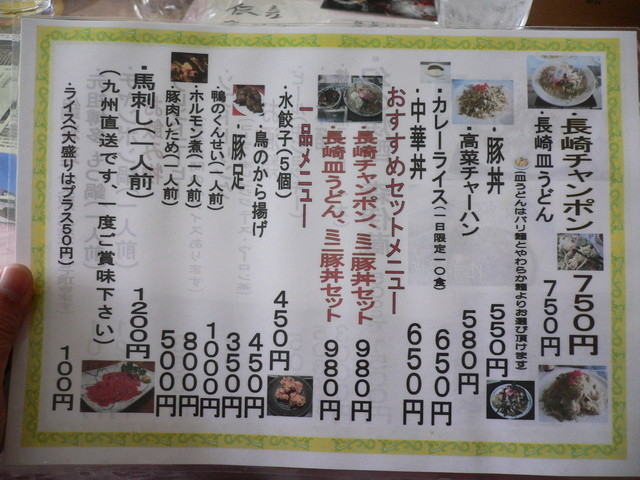 ・長崎チャンポン 750円
・長崎皿うどん 750円
(皿うどんはバリ麺とやわらか麺よりお選び頂けます)
・豚丼 550円
・高菜チャーハン 580円
・カレーライス(一日限定一〇食) 650円
・中華丼 650円
おすすめセットメニュー
・長崎チャンポン、ミニ豚丼セット 980円
・長崎皿うどん、ミニ豚丼セット 980円
一品メニュー
・水餃子(5個) 450円
・鳥のから揚げ 450円
・豚足 350円
鴨のくんせい(一人前) 1000円
・ホルモン煮(一人前) 800円
・豚肉いため(一人前) 500円
・馬刺し(一人前) 1200円
(九州直送です、一度ご賞味下さい)
・ライス(大盛りはプラス50円) 100円